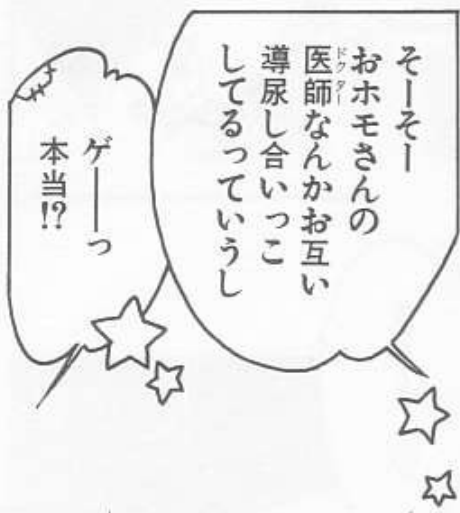 そーそー
おホモさんの
医師なんかお互い
ドクター
導尿し合いっこ
してるっていうし
ゲーーっ
本当!?